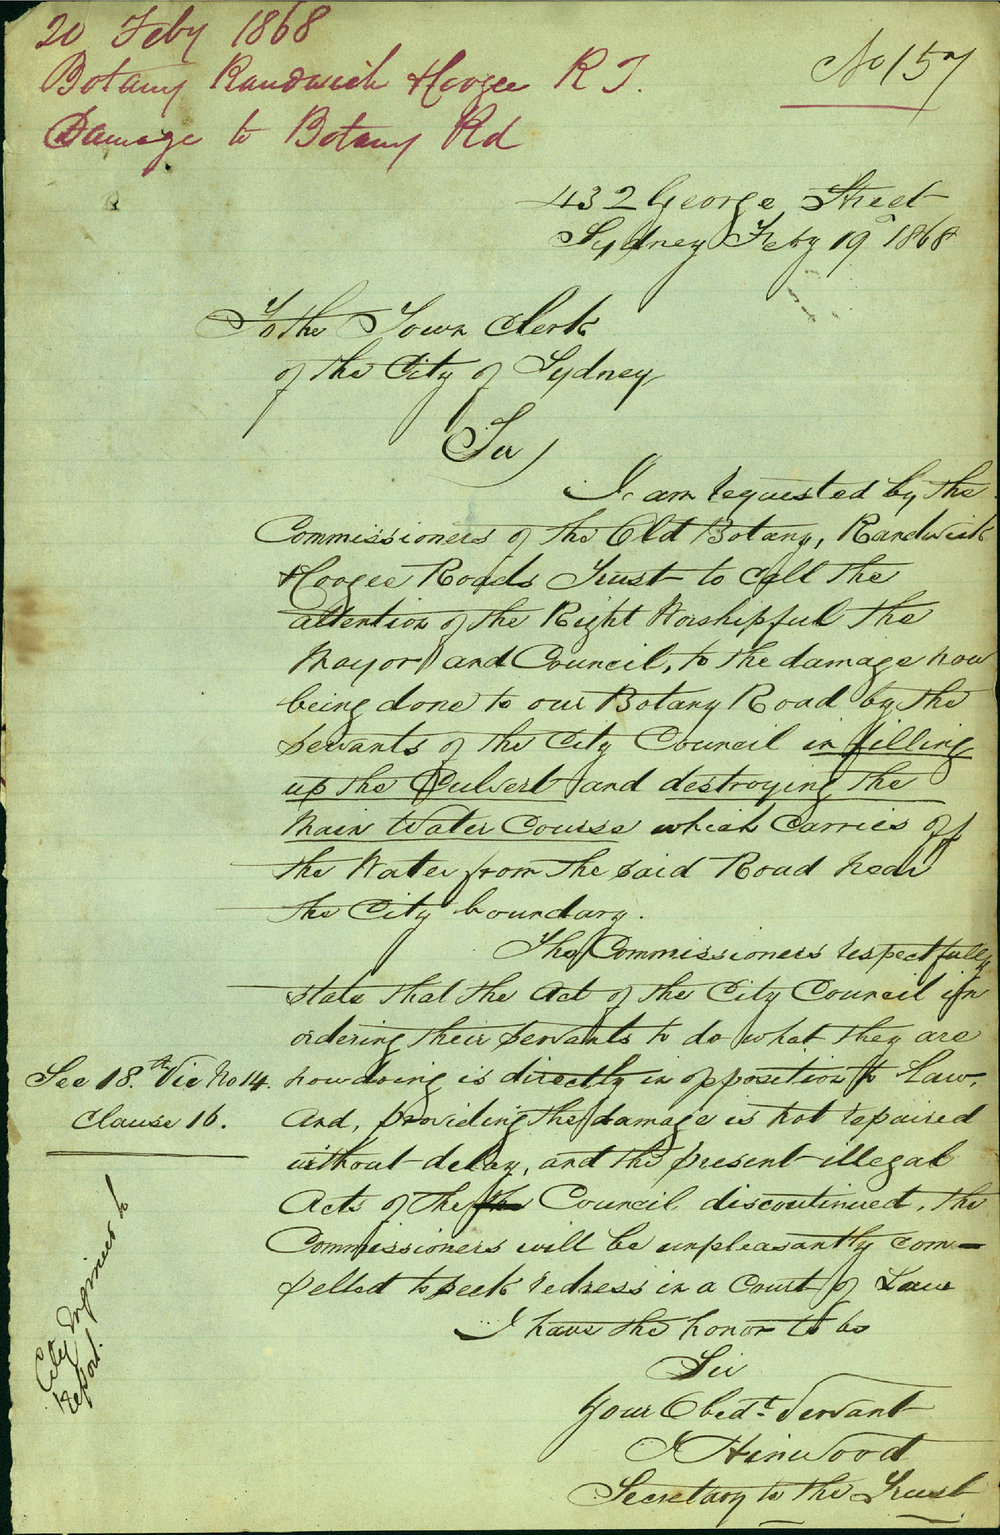 20 Feby 1868
Botany Randwick & Coogee R T.
Damage to Botany Rd
No 157
432 George Street
Sydney Feby 19th 1868
To the Town Clerk
of the City of Sydney
Sir
I am requested by the
Commissioners of the Old Botany, Randwick
& Coogee Roads Trust to call the
attention of the Right Worshipful the
Mayor and Council, to the damage now
being done to our Botany Road by the
servants of the City Council in filling
up the Culvert and destroying the
Main Water Course which Carries off
the Water from the said Road near
the City boundary.
The Commissioners respectfully
state that the Act of the City Council in
ordering their servants to do what they are
now doing is directly in opposition to Law,
See 18th Vic No 14.
Clause 16.
And, providing the damage is not repaired
without delay, and the present illegal
Acts of the the Council discontinued, the
Commissioners will be unpleasantly com-
pelled to seek redress in a Court of Law
I have the honor to be
Sir
Your Obedt Servant
J Hinwood
Secretary to the Trust
City Engineer to
Report.